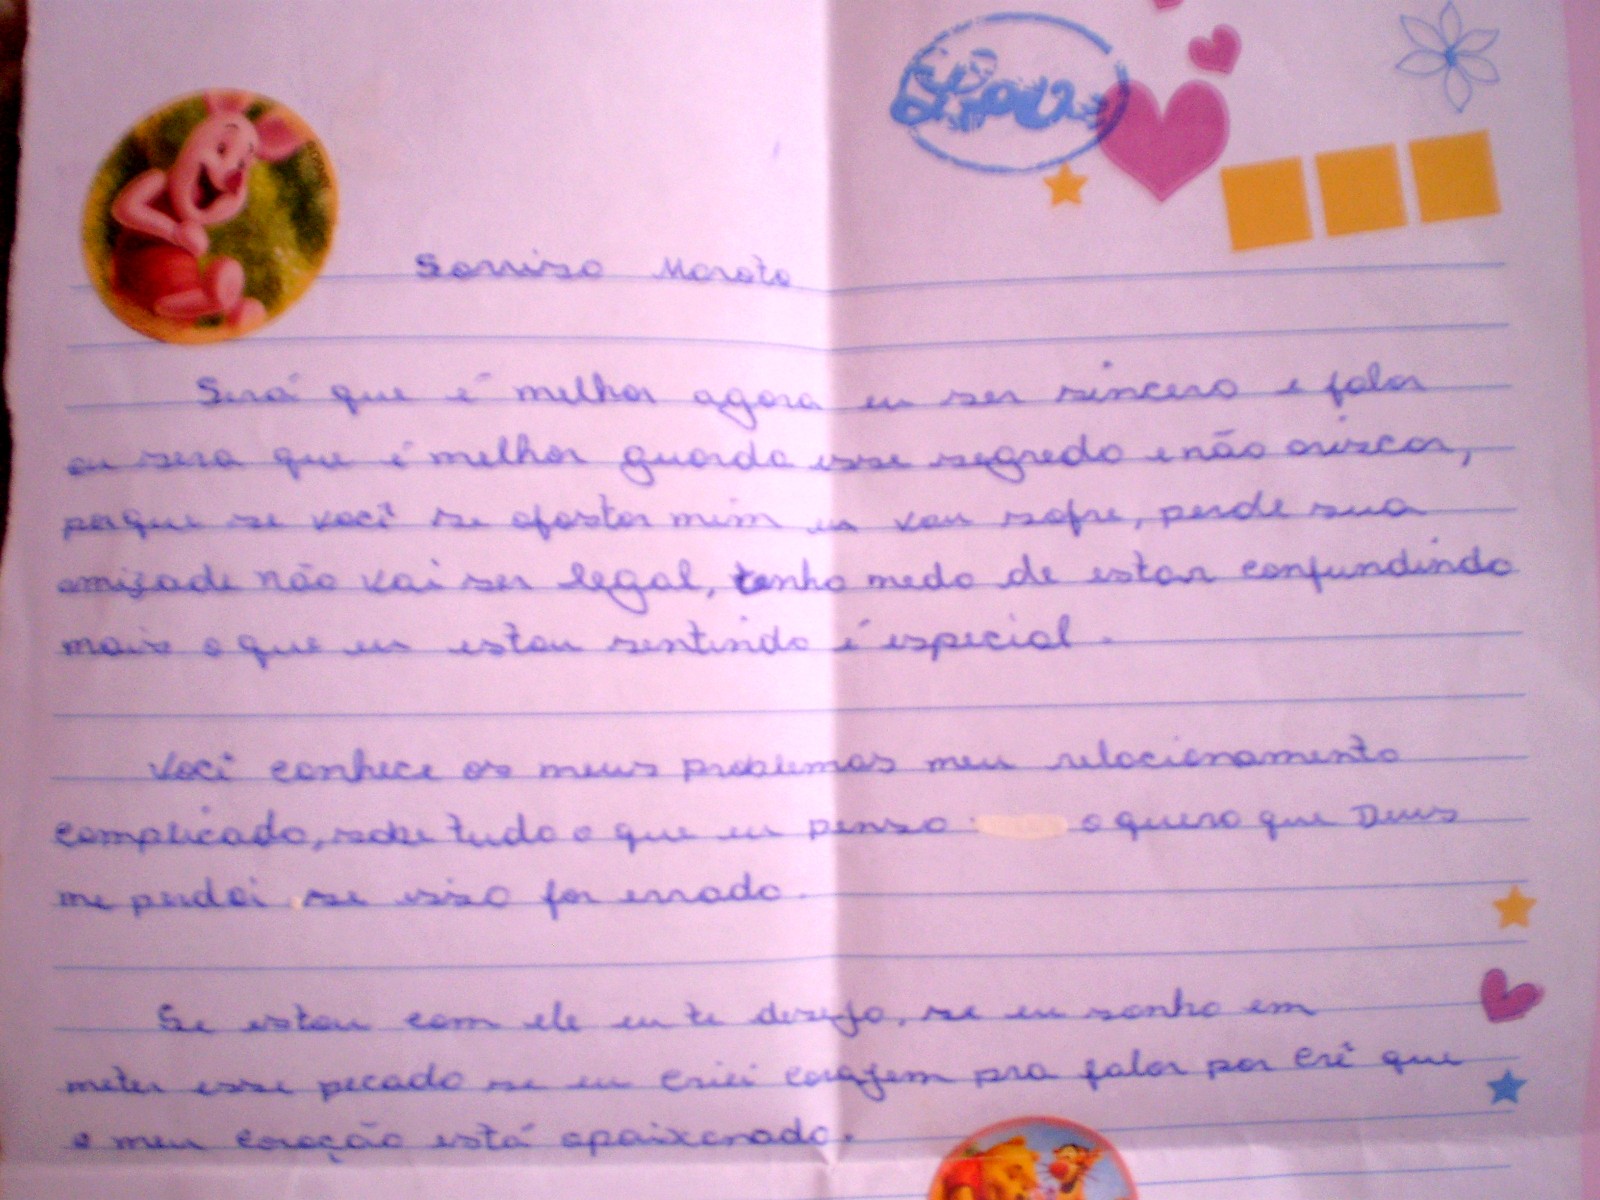 Sorriso Maroto
Será que é melhor agora eu ser sincero e falar
ou sera que é melhor guarda esse segredo e não arriscar,
porque se você se afastar mim eu vou sofre, perde sua
amizade não vai ser legal, tenho medo de estar confundindo
mais o que eu estou sentindo é especial.
Você conhece os meus problemas meu relacionamento
complicado, sabe tudo o que eu penso o quero que Deus
me perdoi se isso for errado.
Se estou com ele eu te desejo, se eu sonho em
meter esse pecado se eu criei coragem pra falar por crê que
o meu coração está apaixonado.